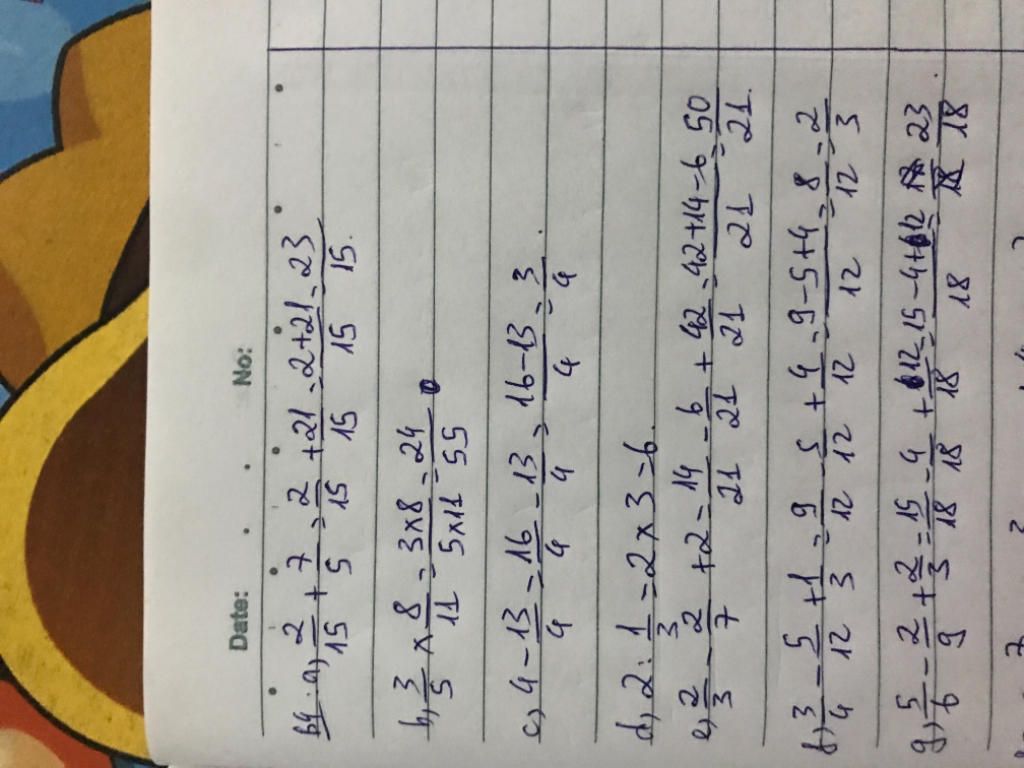 Date: No:
B4: a, 2/15 + 7/5 = 2/15 + 21/15 = 2+21/15 = 23/15.
b, 3/5 × 8/11 = 3×8/5×11 = 24/55
c, 4 - 13/4 = 16/4 - 13/4 = 16-13/4 = 3/4.
d, 2 : 1/3 = 2 × 3 = 6.
e, 2/3 - 2/7 + 2 = 14/21 - 6/21 + 42/21 = 42+14-6/21 = 50/21.
f, 3/4 - 5/12 + 1/3 = 9/12 - 5/12 + 4/12 = 9-5+4/12 = 8/12 = 2/3
g, 5/6 - 2/9 + 2/3 = 15/18 - 4/18 + 12/18 = 15-4+12/18 = 23/18.